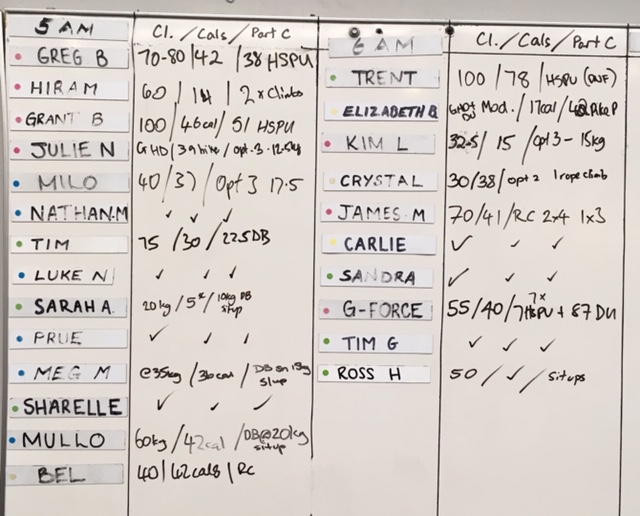 5 AM CI. / Cals / Part C
GREG B 70-80 / 42 / 38 HSPU
HIRAM 60 / 14 / 2 x Climbs
GRANT B 100 / 46cal / 51 HSPU
JULIE N GHD / 39 / opt.3 - 12.5kg
MILO 40 / 37 / Opt 3 17.5
NATHAN.M ✓ ✓ ✓
TIM 75 / 30 / 22.5DB
LUKE N ✓ ✓ ✓
SARAH A. 20kg / 5 / 10kg DB situp
PRUE ✓ ✓ ✓
MEG M @35kg / 36cal / DB on 15kg situp
SHARELLE ✓ ✓ ✓
MULLO 60kg / 42cal / DB@20kg situp
BEL 40 / 42cals / RC
6 AM CI. / Cals / Part C
TRENT 100 / 78 / HSPU
ELIZABETH B Mod. / 17cal /
KIM L 32.5 / 15 / Opt 3 - 15kg
CRYSTAL 30 / 38 / opt 2 1 rope climb
JAMES M 70 / 41 / RC 2x4 1x3
CARLIE ✓ ✓ ✓
SANDRA ✓ ✓ ✓
G-FORCE 55 / 40 / 7x HSPU + 87 DU
TIM G ✓ ✓ ✓
ROSS H 50 / ✓ / situps